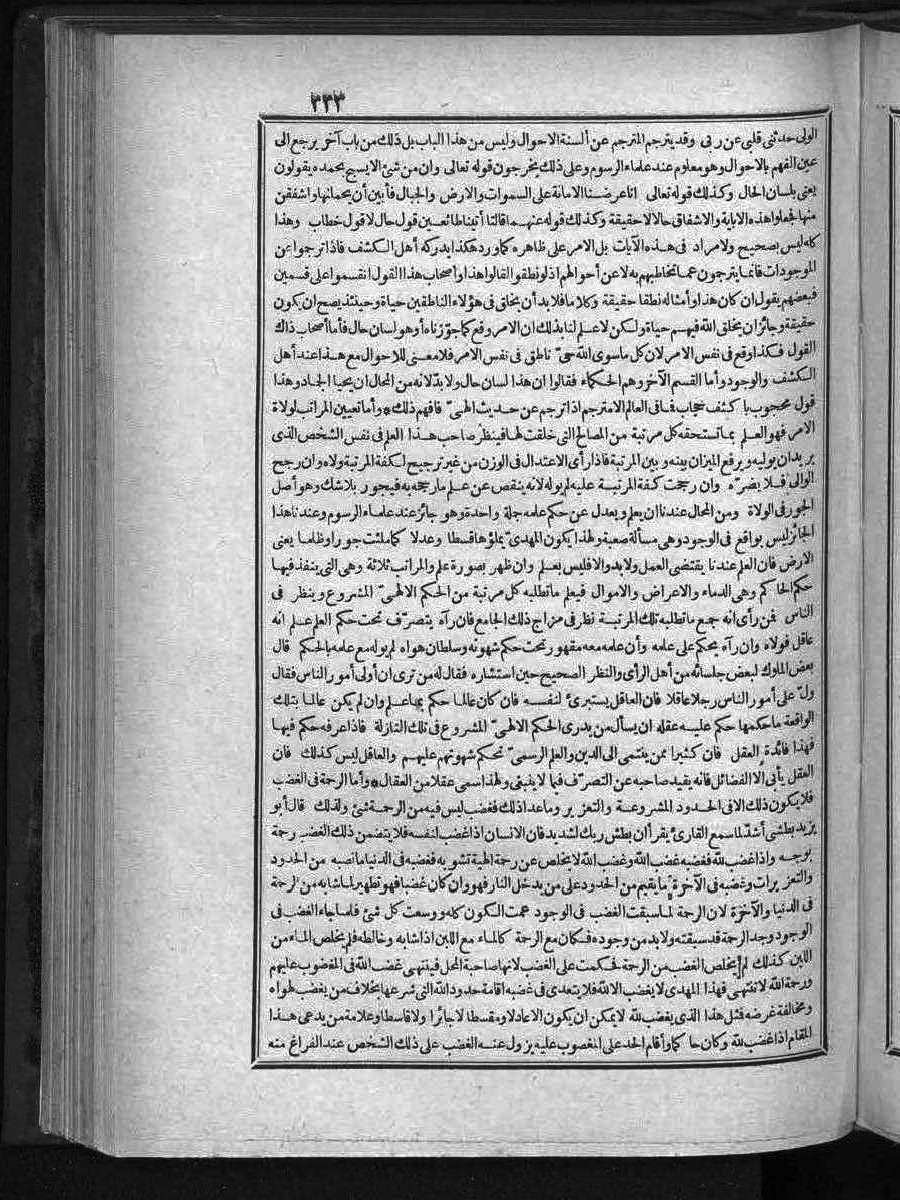 ٣٣٣
الولى حدثنى قلبى عن ربى وقد يترجم المترجم عن ألسنة الاحوال وليس من هذا الباب بل ذلك من باب آخر يرجع الى
عين الفهم بالاحوال وهو معلوم عند علماء الرسوم وعلى ذلك يخرجون قوله تعالى وان من شئ الا يسبح بحمده يقولون
يعنى بلسان الحال وكذلك قوله تعالى انا عرضنا الامانة على السموات والارض والجبال فأبين أن يحملنها واشفقن
منها فجعلوا هذه الاباية والاشفاق حالا لا حقيقة وكذلك قوله عنهما قالتا أتيناطائعين قول حال لا قول خطاب وهذا
كله ليس بصحيح ولا مراد فى هذه الآيات بل الامر على ظاهره كما ورد هكذا يدركه أهل الكشف فاذا ترجموا عن
الموجودات فانما يترجمون عما تخاطبهم به لا عن أحوالهم اذ لو نطقوا لقالوا هذا وأصحاب هذا القول انقسموا على قسمين
فبعضهم يقول ان كان هذا وأمثاله نطقا حقيقة وكلاما فلا بد أن يخلق فى هؤلاء الناطقين حياة وحينئذ يصح ان يكون
حقيقة وجائز ان يخلق الله فيهم حياة ولكن لا علم لنا بذلك ان الامر وقع كما جوّزناه أو هو لسان حال فأما أصحاب ذاك
القول فكذا وقع فى نفس الامر لان كل ما سوى الله حىّ ناطق فى نفس الامر فلا معنى للاحوال مع هذا عند أهل
الكشف والوجود وأما القسم الآخر وهم الحكماء فقالوا ان هذا لسان حال ولا بدّ لانه من المحال ان يحيا الجماد وهذا
قول محجوب باكشف حجاب فما فى العالم الا مترجم اذا ترجم عن حديث الهىّ فافهم ذلك * وأما تعيين المراتب لولاة
الامر فهو العلم بما تستحقه كل مرتبة من المصالح التى خلقت لها فينظر صاحب هذا العلم فى نفس الشخص الذى
يريد ان يوليه ويرفع الميزان بينه وبين المرتبة فاذا رأى الاعتدال فى الوزن من غير ترجيح لكفة المرتبة ولاه وان رجح
الوالى فلا يضرّه وان رجحت كفة المرتبة عليه لم يوله لانه ينقص عن علم ما رجحه به فيجور بلا شك وهو أصل
الجور فى الولاة ومن المحال عندنا ان يعلم ويعدل عن حكم علمه جلة واحدة وهو جائز عند علماء الرسوم وعندنا هذا
الجائز ليس بواقع فى الوجود وهى مسألة صعبة ولهذا يكون المهدىّ يملؤها قسطا وعدلا كما ملئت جورا وظلما يعنى
الارض فان العلم عندنا يقتضى العمل ولا بد والا فليس بعلم وان ظهر بصورة علم والمراتب ثلاثة وهى التى ينفذ فيها
حكم الحاكم وهى الدماء والاعراض والاموال فيعلم ما تطلبه كل مرتبة من الحكم الالهىّ المشروع وينظر فى
الناس فمن رأى انه جمع ما تطلبه تلك المرتبة نظر فى مزاج ذلك الجامع فان رآه يتصرّف تحت حكم العلم علم انه
عاقل فولاه وان رآه يحكم على علمه وأن علمه معه مقهور تحت حكم شهوته وسلطان هواه لم يوله مع علمه بالحكم قال
بعض الملوك لبعض جلسائه من أهل الرأى والنظر الصحيح حين استشاره فقال له من ترى ان أولى أمور الناس فقال
ولّ على أمور الناس رجلا عاقلا فان العاقل يستبرئ لنفسه فان كان عالما حكم بما علم وان لم يكن عالما بتلك
الواقعة ما حكمها حكم عليه عقله ان يسأل من يدرى الحكم الالهىّ المشروع فى تلك النازلة فاذا عرفه حكم فيها
فهذا فائدة العقل فان كثيرا ممن ينتمى الى الدين والعلم الرسمىّ تحكم شهوتهم عليهم والعاقل ليس كذلك فان
العقل يأبى الا الفضائل فانه يقيد صاحبه عن التصرّف فيما لا ينبغى ولهذا سمى عقلا من العقال * وأما الرحة فى الغضب
فلا يكون ذلك الا فى الحدود المشروعة والتعزير وما عدا ذلك فغضب ليس فيه من الرحمة شئ ولذلك قال أبو
يزيد بطشى أشدّ لما سمع القارئ يقرأ ان بطش ربك لشديد فان الانسان اذا غضب لنفسه فلا يتضمن ذلك الغضب رحة
بوجه واذا غضب لله فغضبه غضب الله وغضب الله لا يخلص عن رحة الهية تشوبه فغضبه فى الدنيا ما نصبه من الحدود
والتعزيرات وغضبه فى الآخرة ما يقيم من الحدود على من يدخل النار فهو وان كان غضبا فهو تطهير لما شابه من الرحة
فى الدنيا والآخرة لان الرحمة لما سبقت الغضب فى الوجود عمت الكون كله ووسعت كل شئ فلما جاء الغضب فى
الوجود وجد الرحمة قد سبقته ولا بد من وجوده فكان مع الرحمة كالماء مع اللبن اذا شابه وخالطه فلم يخلص الماء من
اللبن كذلك لم يخلص الغضب من الرحمة فحكمت على الغضب لانها صاحبة المحل فينتهى غضب الله فى المغضوب عليهم
ورحمة الله لا تنتهى فهذا المهدى لا يغضب الا لله فلا يتعدى فى غضبه اقامة حدود الله التى شرعها بخلاف من يغضب لهواه
ومخالفة غرضه فمثل هذا الذى يغضب لله لا يمكن ان يكون الا عادلا ومقسطا لا جائرا ولا قاسطا وعلامة من يدعى هذا
المقام اذا غضب لله وكان حاكما وأقام الحد على المغصوب عليه يزول عنه الغضب على ذلك الشخص عند الفراغ منه